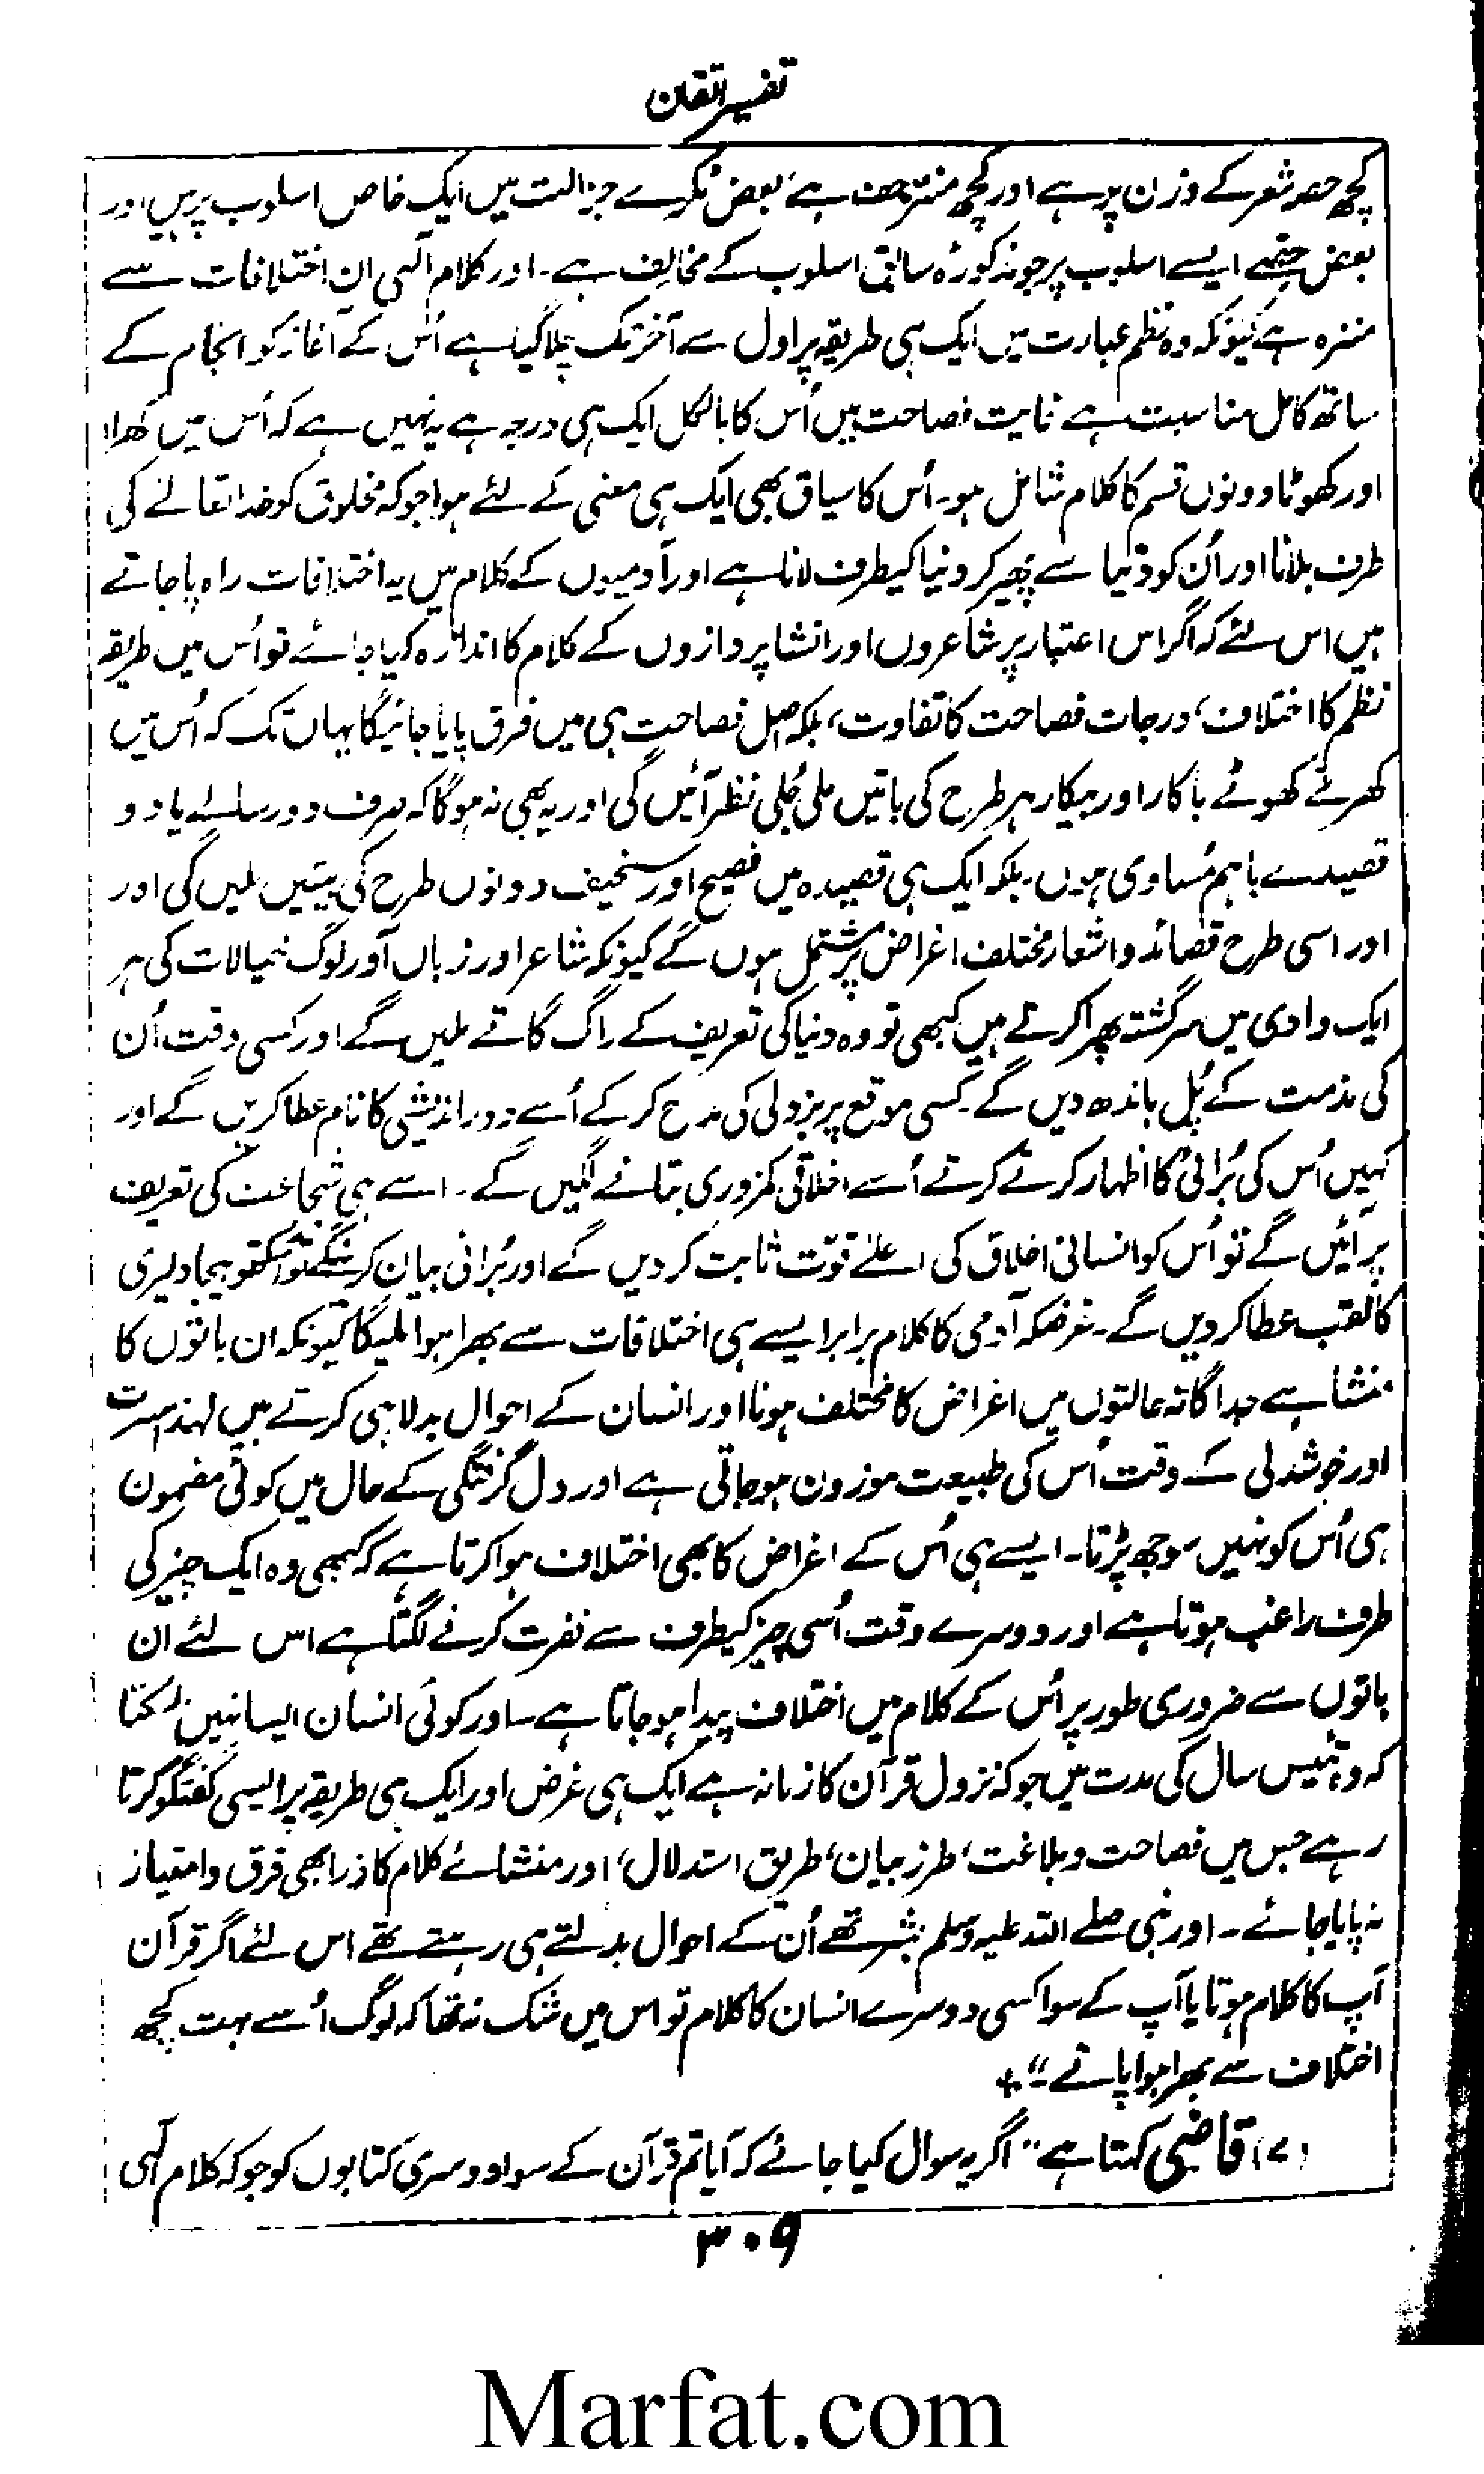 تفسیر اتقان
کچھ حصہ شعر کے وزن پر ہے اور کچھ منزحف ہے، بعض ٹکرے جزالت میں ایک خاص اسلوب پر ہیں اور
بعض حصّے ایسے اسلوب پر جو مذکورہ سابق اسلوب کے مخالف ہے۔ اور کلام آلہی ان اختلافات سے
منزہ ہے کیونکہ وہ نظم عبارت میں ایک ہی طریقہ پر اول سے آخر تک چلا گیا ہے اُس کے آغاز کو انجام کے
ساتھ کامل مناسبت ہے غایت فصاحت میں اُس کا بالکل ایک ہی درجہ ہے یہ نہیں ہے کہ اُس میں کھرا
اور کھوٹا دونوں قسم کا کلام شامل ہو۔ اُس کا سیاق بھی ایک ہی معنی کے لئے ہوا جو کہ مخلوق کو خدا تعالےٰ کی
طرف بلانا اور اُن کو دُنیا سے پھیر کر دنیا کیطرف لانا ہے اور آدمیوں کے کلام میں یہ اختلافات راہ پا جاتے
ہیں اس لئے کہ اگر اس اعتبار پر شاعروں اور انشا پردازوں کے کلام کا اندازہ کیا جائے تو اُس میں طریقہ
نظم کا اختلاف، درجات فصاحت کا تفاوت، بلکہ اصل فصاحت ہی میں فرق پایا جائیگا یہاں تک کہ اُس میں
کھرے کھوٹے باکار اور بیکار ہر طرح کی باتیں ملی جُلی نظر آئیں گی اور یہ بھی نہ ہوگا کہ صرف دو رسالے یا دو
قصیدے باہم مُساوی ہوں۔ بلکہ ایک ہی قصیدہ میں فصیح اور سخیف دونوں طرح کی بیتیں ملیں گی اور
اور اسی طرح قصائد و اشعار مختلف اغراض پر مشتمل ہوں گے کیونکہ شاعر اور زباں آور لوگ خیالات کی ہر
ایک وادی میں سرگشتہ پھرا کرتے ہیں کبھی تو وہ دنیا کی تعریف کے راگ گاتے ملیں گے اور کسی وقت اُن
کی مذمت کے پُل باندھ دیں گے۔ کسی موقع پر بزدلی کی مدح کر کے اُسے دور اندیشی کا نام عطا کریں گے اور
کہیں اُس کی بُرائی کا اظہار کرتے کرتے اُسے اخلاقی کمزوری بتانے لگیں گے۔ اسے ہی شجاعت کی تعریف
پر آئیں گے تو اُس کو انسانی اخلاق کی اعلےٰ قوّت ثابت کر دیں گے اور بُرائی بیان کرینگے تو اسکو بیجا دلیری
کا لقب عطا کر دیں گے۔ غرضکہ آدمی کا کلام برابر ایسے ہی اختلافات سے بھرا ہوا ملیگا کیونکہ ان باتوں کا
منشا ہے جداگانہ حالتوں میں اغراض کا مختلف ہونا اور انسان کے احوال بدلا ہی کرتے ہیں لہٰذا مسرت
اور خوشدلی کے وقت اُس کی طبیعت موزون ہو جاتی ہے اور دل گرفتگی کے حال میں کوئی مضمون
ہی اُس کو نہیں سوجھ پڑتا۔ ایسے ہی اُس کے اغراض کا بھی اختلاف ہوا کرتا ہے کہ کبھی وہ ایک چیز کی
طرف راغب ہوتا ہے اور دوسرے وقت اُسی چیز کیطرف سے نفرت کرنے لگتا ہے اس لئے ان
باتوں سے ضروری طور پر اُس کے کلام میں اختلاف پیدا ہو جاتا ہے۔ اور کوئی انسان ایسا نہیں
کہ وہ تئیس سال کی مدت میں جو کہ نزول قرآن کا زمانہ ہے ایک ہی غرض اور ایک ہی طریقہ پر ایسی گفتگو کرتا
رہے جس میں فصاحت و بلاغت، طرز بیان، طریق استدلال، اور منشائے کلام کا ذرا بھی فرق و امتیاز
نہ پایا جائے۔ اور نبی صلے اللہ علیہ وسلم بشر تھے اُن کے احوال بدلتے ہی رہتے تھے اس لئے اگر قرآن
آپ کا کلام ہوتا یا آپ کے سوا کسی دوسرے انسان کا کلام تو اس میں شک نہ تھا کہ لوگ اُسے بہت کچھ
اختلاف سے بھرا ہوا پاتے۔"+
(۷) قاضی کہتا ہے "اگر یہ سوال کیا جائے کہ آیا تم قرآن کے سوا دوسری کتابوں کو جو کہ کلام آلہی
۳۰۹
Marfat.com